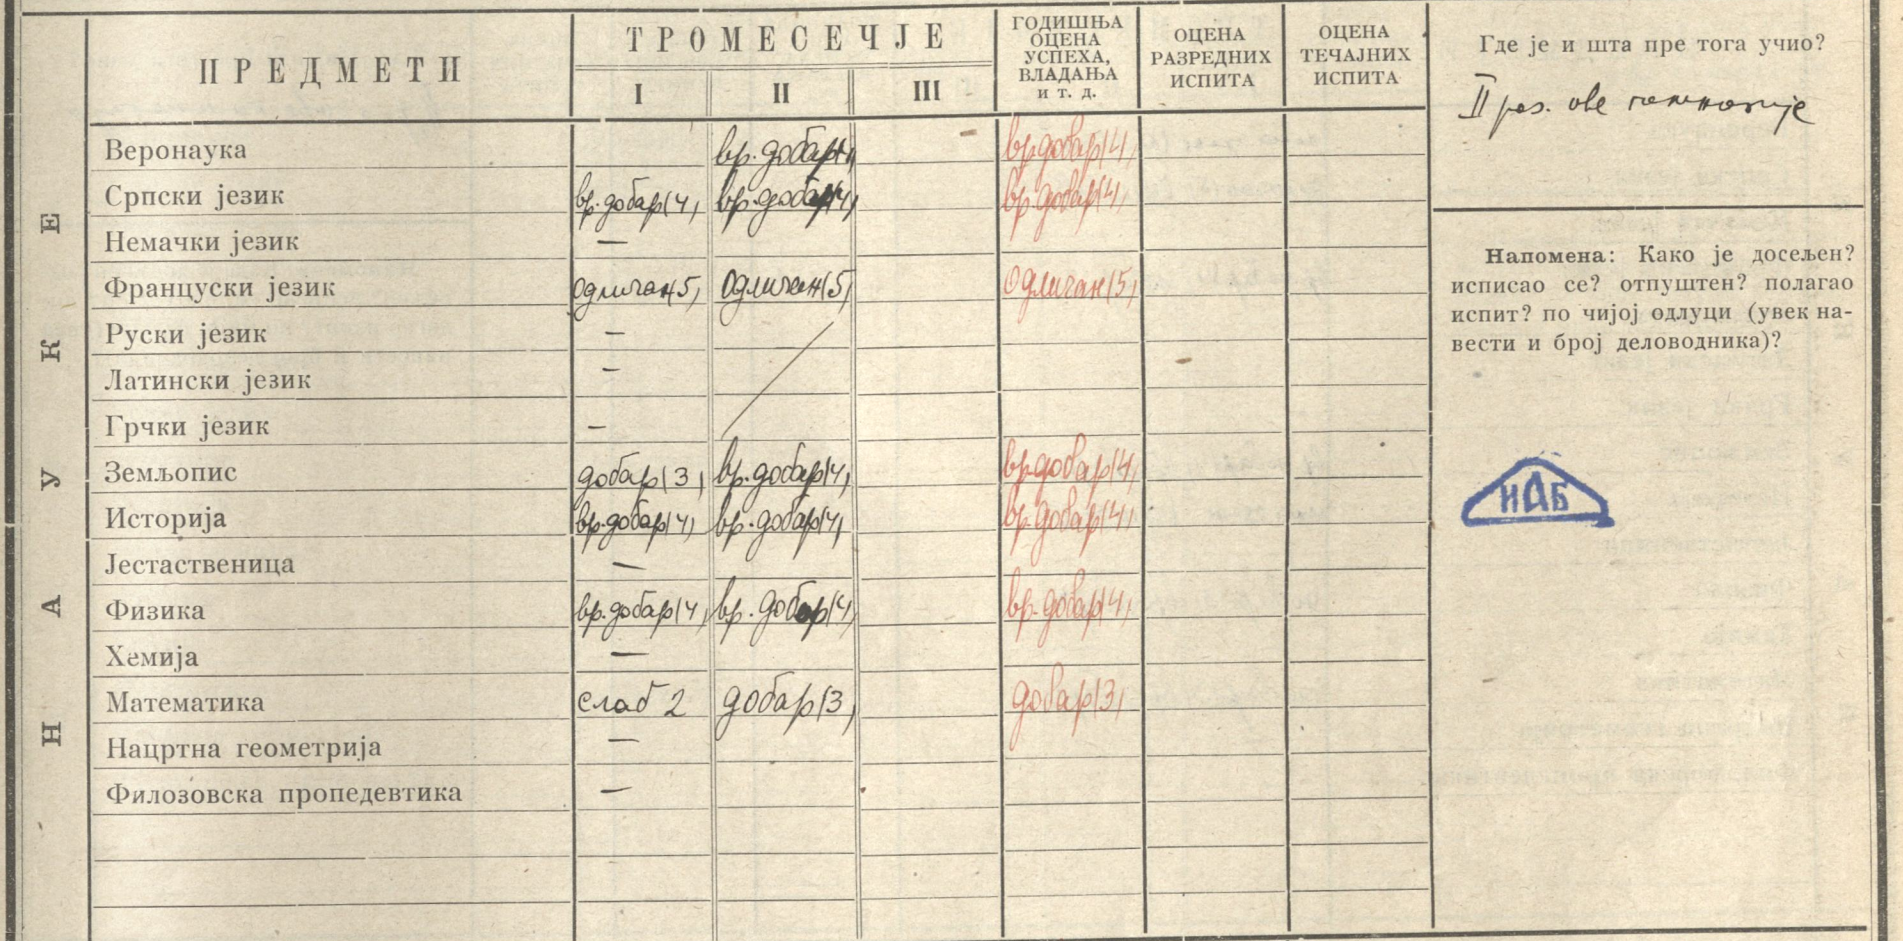 НАУКЕ
ПРЕДМЕТИ
ТРОМЕСЕЧЈЕ
I II III
ГОДИШЊА
ОЦЕНА
УСПЕХА,
ВЛАДАЊА
и т. д.
ОЦЕНА
РАЗРЕДНИХ
ИСПИТА
ОЦЕНА
ТЕЧАЈНИХ
ИСПИТА
Веронаука вр. добар(4) вр. добар(4)
Српски језик вр. добар(4) вр. добар(4) вр. добар(4)
Немачки језик —
Француски језик Одличан 5) Одличан(5) Одличан(5)
Руски језик —
Латински језик —
Грчки језик —
Земљопис добар(3) вр. добар(4) вр. добар(4)
Историја вр. добар(4) вр. добар(4) вр. добар(4)
Јестаственица —
Физика вр. добар(4) вр. добар(4) вр. добар(4)
Хемија —
Математика слаб 2 добар(3) добар(3)
Нацртна геометрија —
Филозовска пропедевтика —
Где је и шта пре тога учио?
II раз. ове гимназије
Напомена: Како је досељен?
исписао се? отпуштен? полагао
испит? по чијој одлуци (увек на-
вести и број деловодника)?
ИАБ